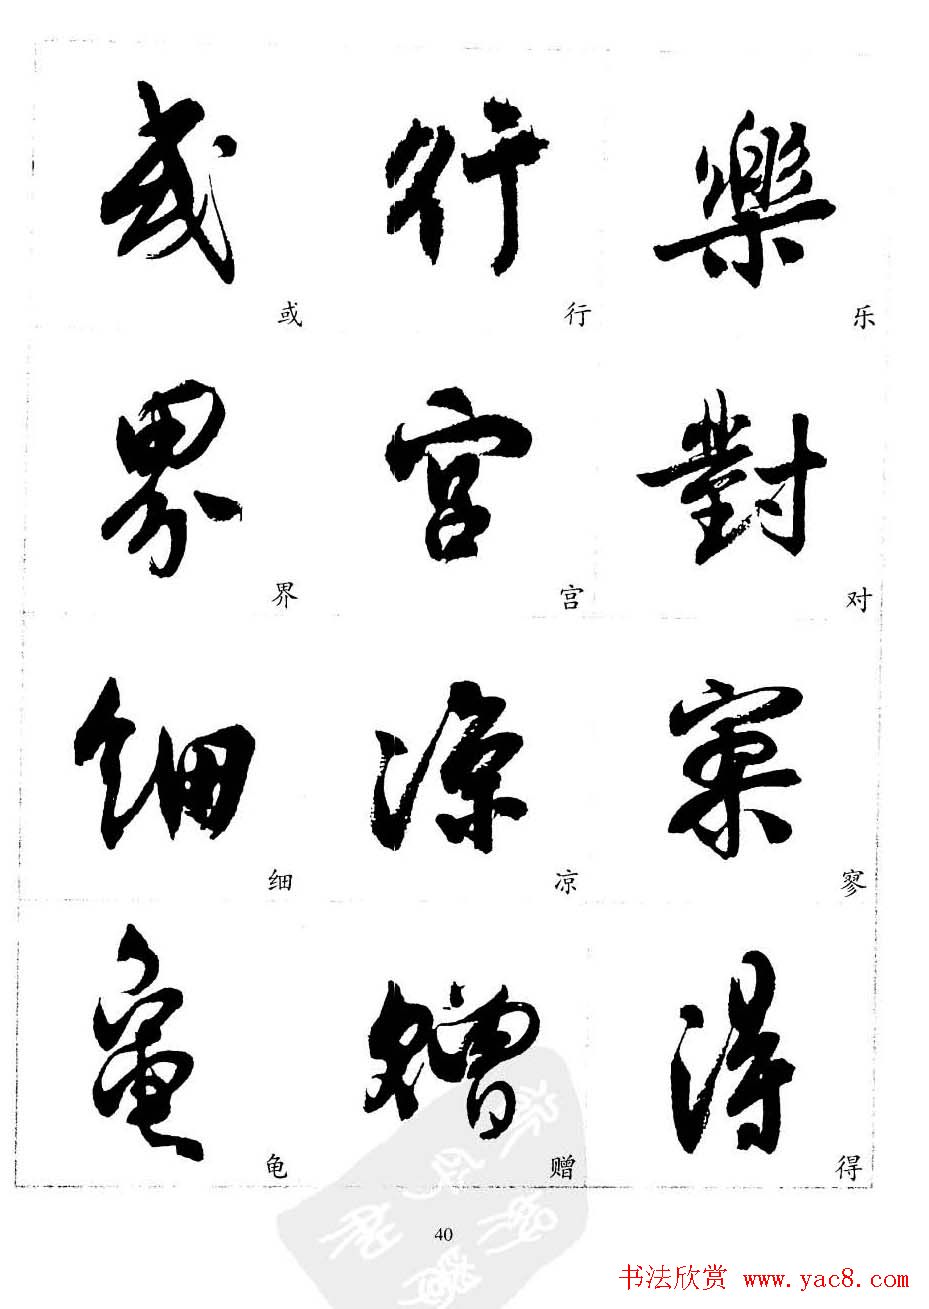 或 行 樂
或 行 乐
界 宫 對
界 宫 对
细 凉 寥
细 凉 寥
龟 赠 得
龟 赠 得
40
书法欣赏 www.yac8.com